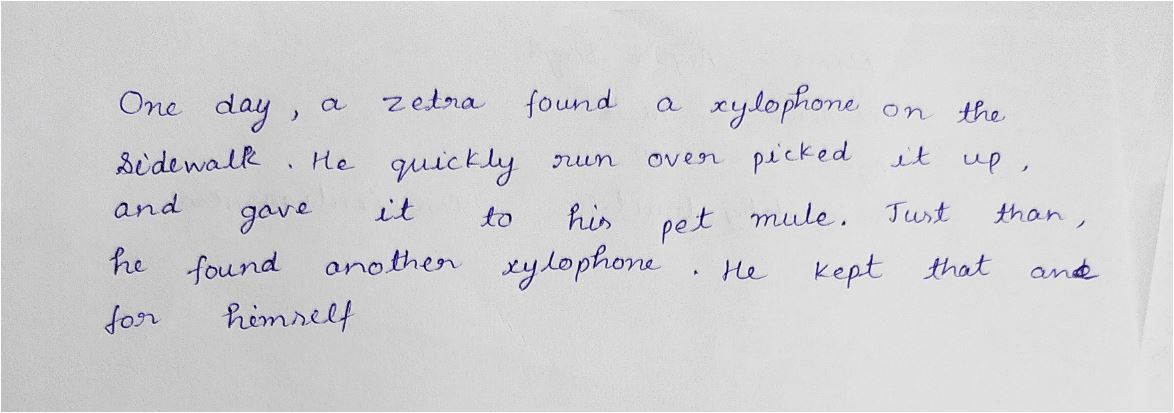 One day, a zetra found a xylophone on the
sidewalk. He quickly run over picked it up,
and gave it to his pet mule. Just than,
he found another xylophone. He kept that and
for himself